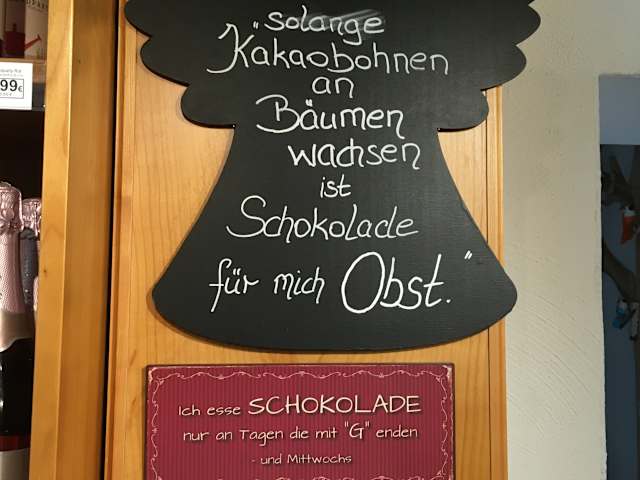 "solange
Kakaobohnen
an
Bäumen
wachsen
ist
Schokolade
für mich Obst."
99€
Ich esse SCHOKOLADE
nur an Tagen die mit "G" enden
- und Mittwochs